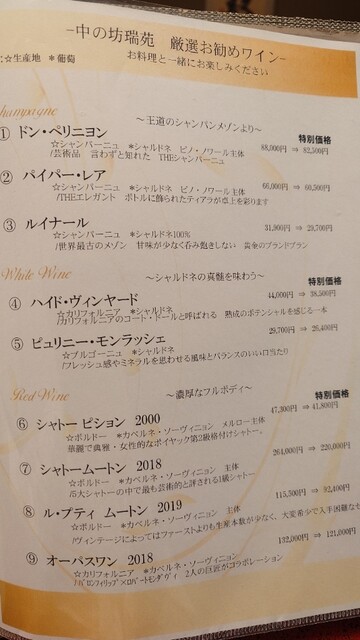 -中の坊瑞苑 厳選お勧めワイン-
☆生産地 *葡萄 お料理と一緒にお楽しみください
Champagne
～王道のシャンパンメゾンより～
特別価格
① ドン・ペリニヨン
88,000円 ⇒ 82,500円
☆シャンパーニュ *シャルドネ ピノ・ノワール主体
/芸術品 言わずと知れた THEシャンパーニュ
② パイパー・レア
66,000円 ⇒ 60,500円
☆シャンパーニュ *シャルドネ ピノ・ノワール主体
/THEエレガント ボトルに飾られたティアラが卓上を彩ります
③ ルイナール
31,900円 ⇒ 29,700円
☆シャンパーニュ *シャルドネ100%
/世界最古のメゾン 甘味が少なく呑み飽きしない 黄金のブランドブラン
White Wine
～シャルドネの真髄を味わう～
特別価格
④ ハイド・ヴィンヤード
44,000円 ⇒ 38,500円
☆カリフォルニア *シャルドネ
/カリフォルニアのコート・ドールと呼ばれる 熟成のポテンシャルを感じる一本
⑤ ピュリニー・モンラッシェ
29,700円 ⇒ 26,400円
☆ブルゴーニュ *シャルドネ
/フレッシュ感やミネラルを思わせる風味とバランスのいい口当たり
Red Wine
～濃厚なフルボディ～
特別価格
⑥ シャトー ピション 2000
47,300円 ⇒ 41,800円
☆ボルドー *カベルネ・ソーヴィニョン メルロー主体
華麗で典雅・女性的なポイヤック第2級格付けシャトー。
⑦ シャトームートン 2018
264,000円 ⇒ 220,000円
☆ボルドー *カベルネ・ソーヴィニョン 主体
/5大シャトーの中で最も芸術的と評される1級シャトー
⑧ ル・プティ ムートン 2019
115,500円 ⇒ 92,400円
☆ボルドー *カベルネ・ソーヴィニョン 主体
/ヴィンテージによってはファーストよりも生産本数が少なく、大変希少で入手困難なセ
⑨ オーパスワン 2018
132,000円 ⇒ 121,000円
☆カリフォルニア *カベルネ・ソーヴィニョン
/バロンフィリップ×ロバートモンダヴィ 2人の巨匠がコラボレーション